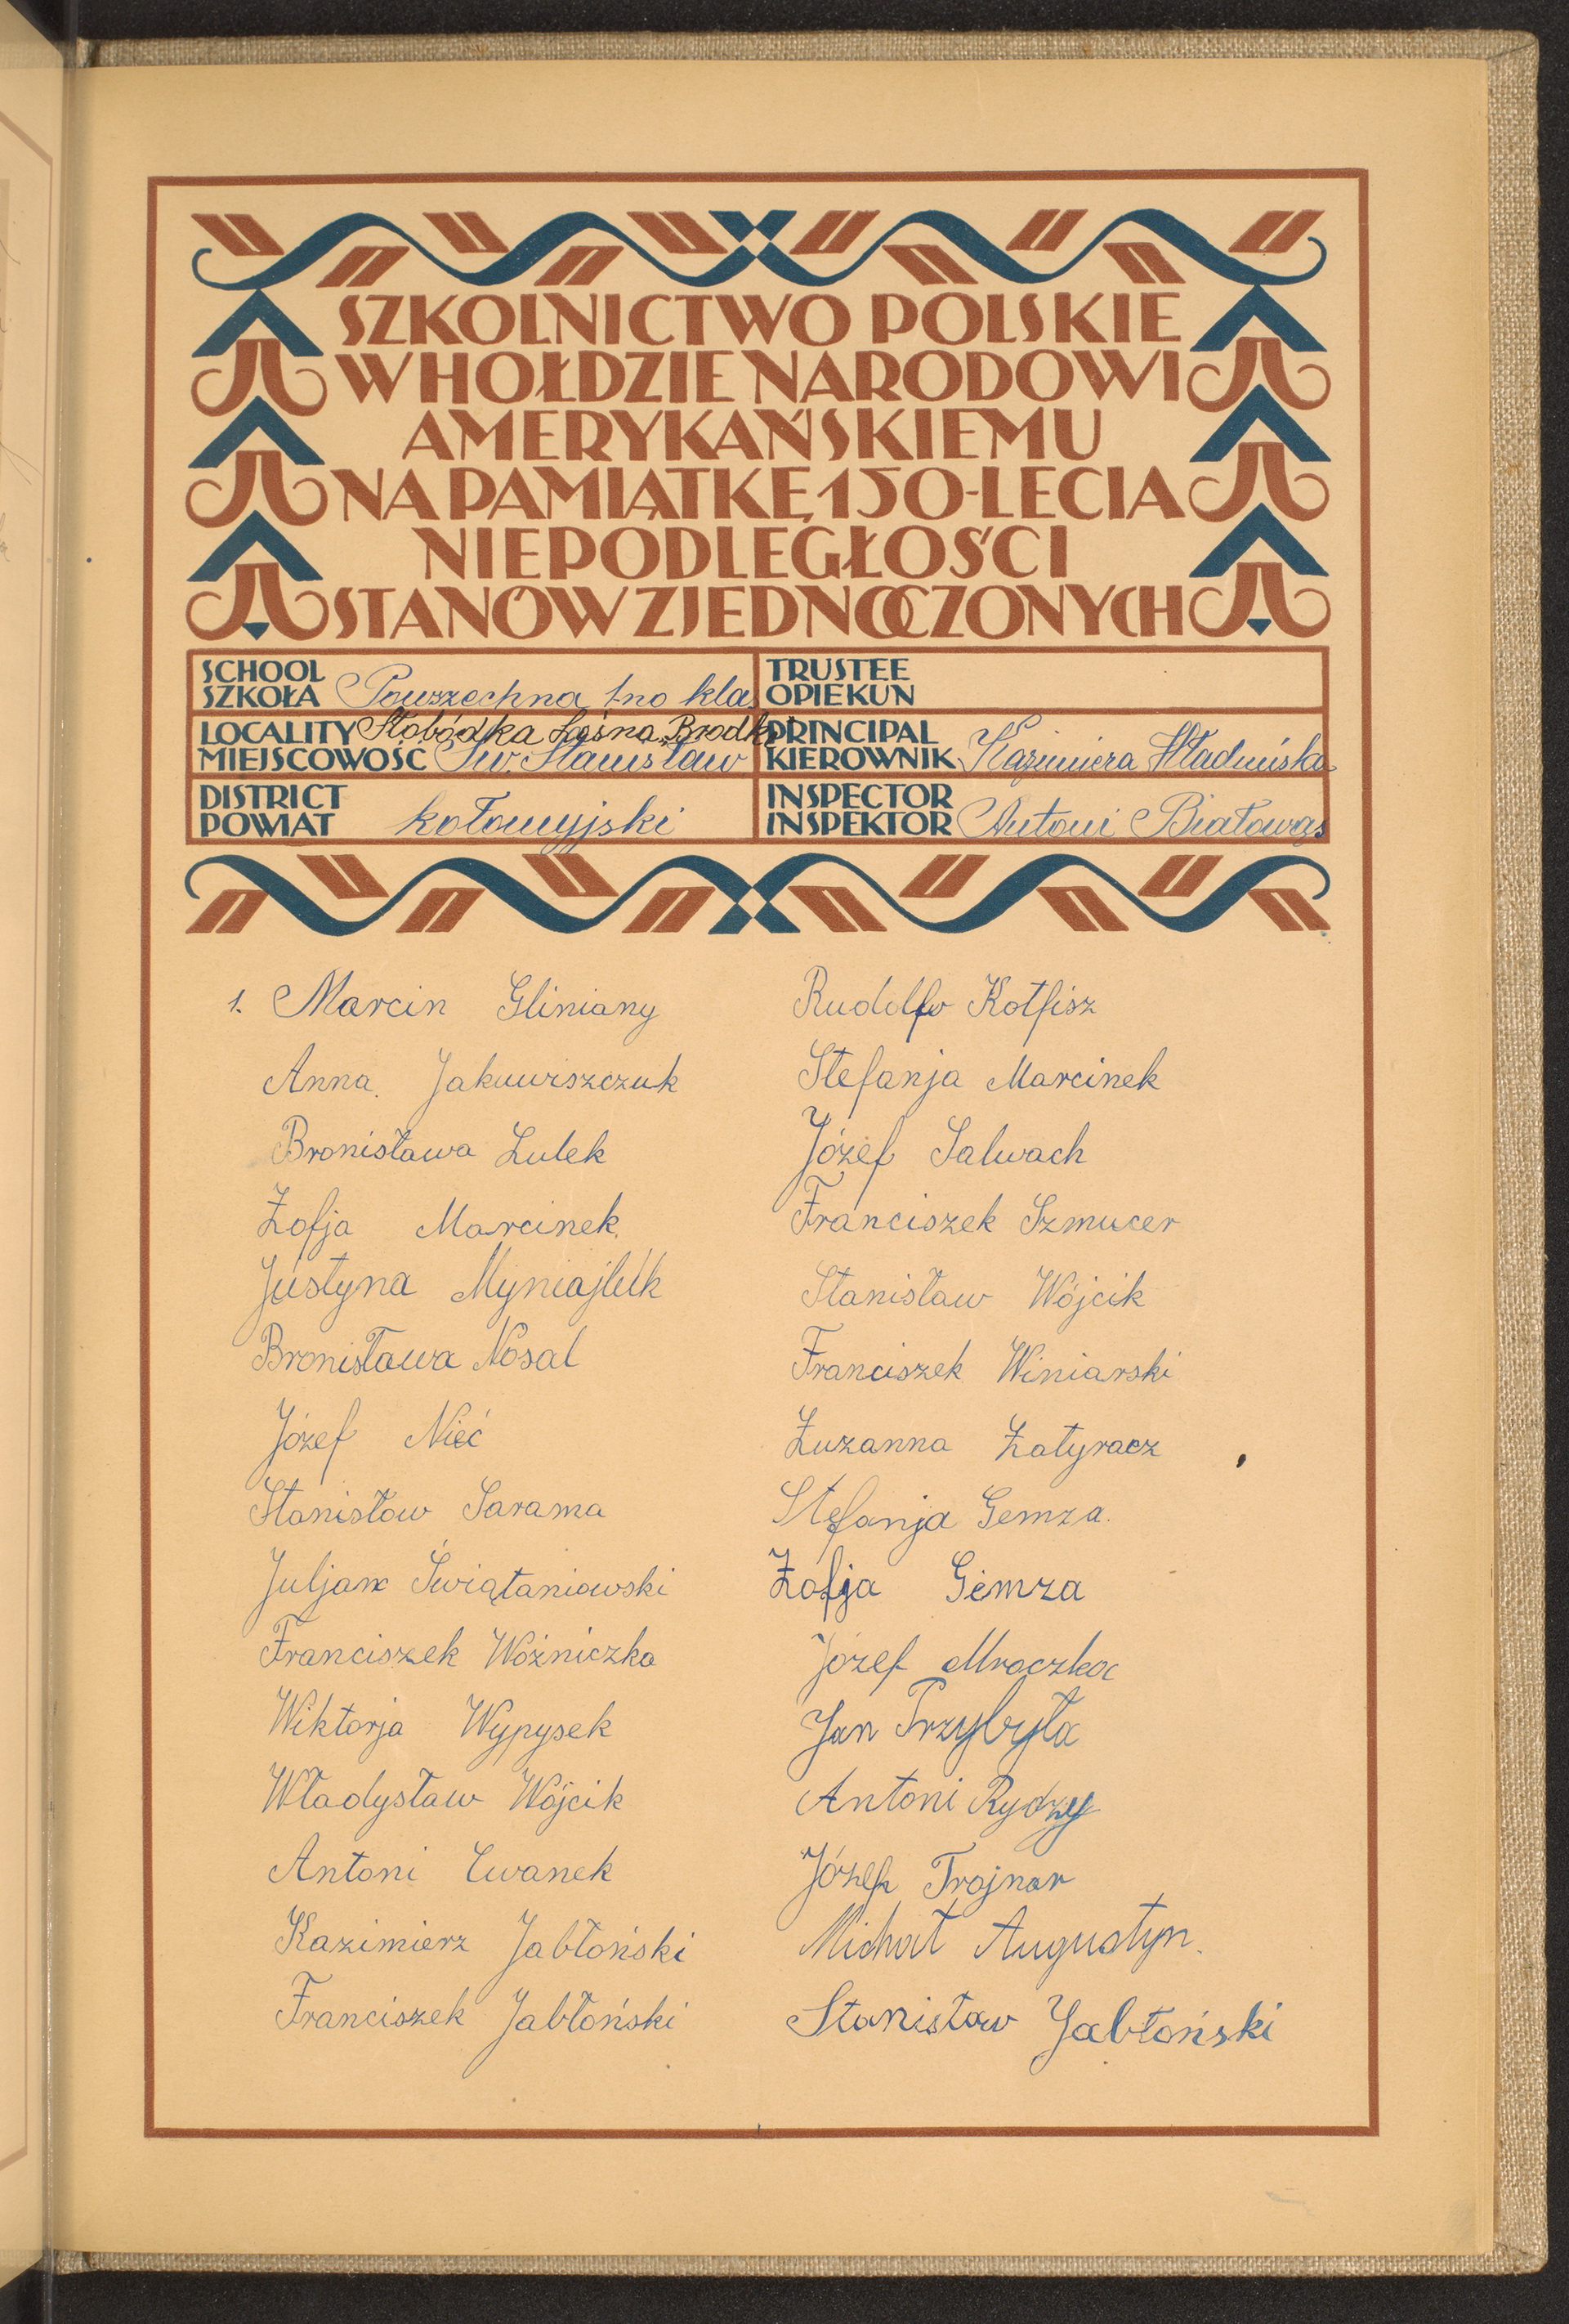 SZKOLNICTWO POLSKIE
W HOŁDZIE NARODOWI
AMERYKAŃSKIEMU
NA PAMIĄTKĘ 150-LECIA
NIEPODLEGŁOŚCI
STANÓW ZJEDNOCZONYCH
SCHOOL
SZKOŁA Powszechna 1-no kla
TRUSTEE
OPIEKUN
LOCALITY Słobódka Leśna "Brodki"
MIEJSCOWOŚĆ Św. Stanisław
PRINCIPAL
KIEROWNIK Kazimiera
DISTRICT
POWIAT kołomyjski
INSPECTOR
INSPEKTOR Antoni Białowąs
1. Marcin Gliniany
Anna Jakuwiszczuk
Bronisława Lulek
Zofja Marcinek
Justyna
Bronisława Nosal
Józef Nieć
Stanisław Sarama
Juljan Świątaniowski
Franciszek Woźniczka
Wiktorja Wypysek
Władysław Wójcik
Antoni Cwanek
Kazimierz Jabłoński
Franciszek Jabłoński
Rudolf Kotfisz
Stefanja Marcinek
Józef Salwach
Franciszek Szmucer
Stanisław Wójcik
Franciszek Winiarski
Zuzanna Zatyracz
Stefanja Gemza.
Zofja Gemza
Józef Mroczka
Jan Przybyła
Antoni Rydzy
Józef Trojnar
Michał Augustyn.
Stanisław Jabłoński